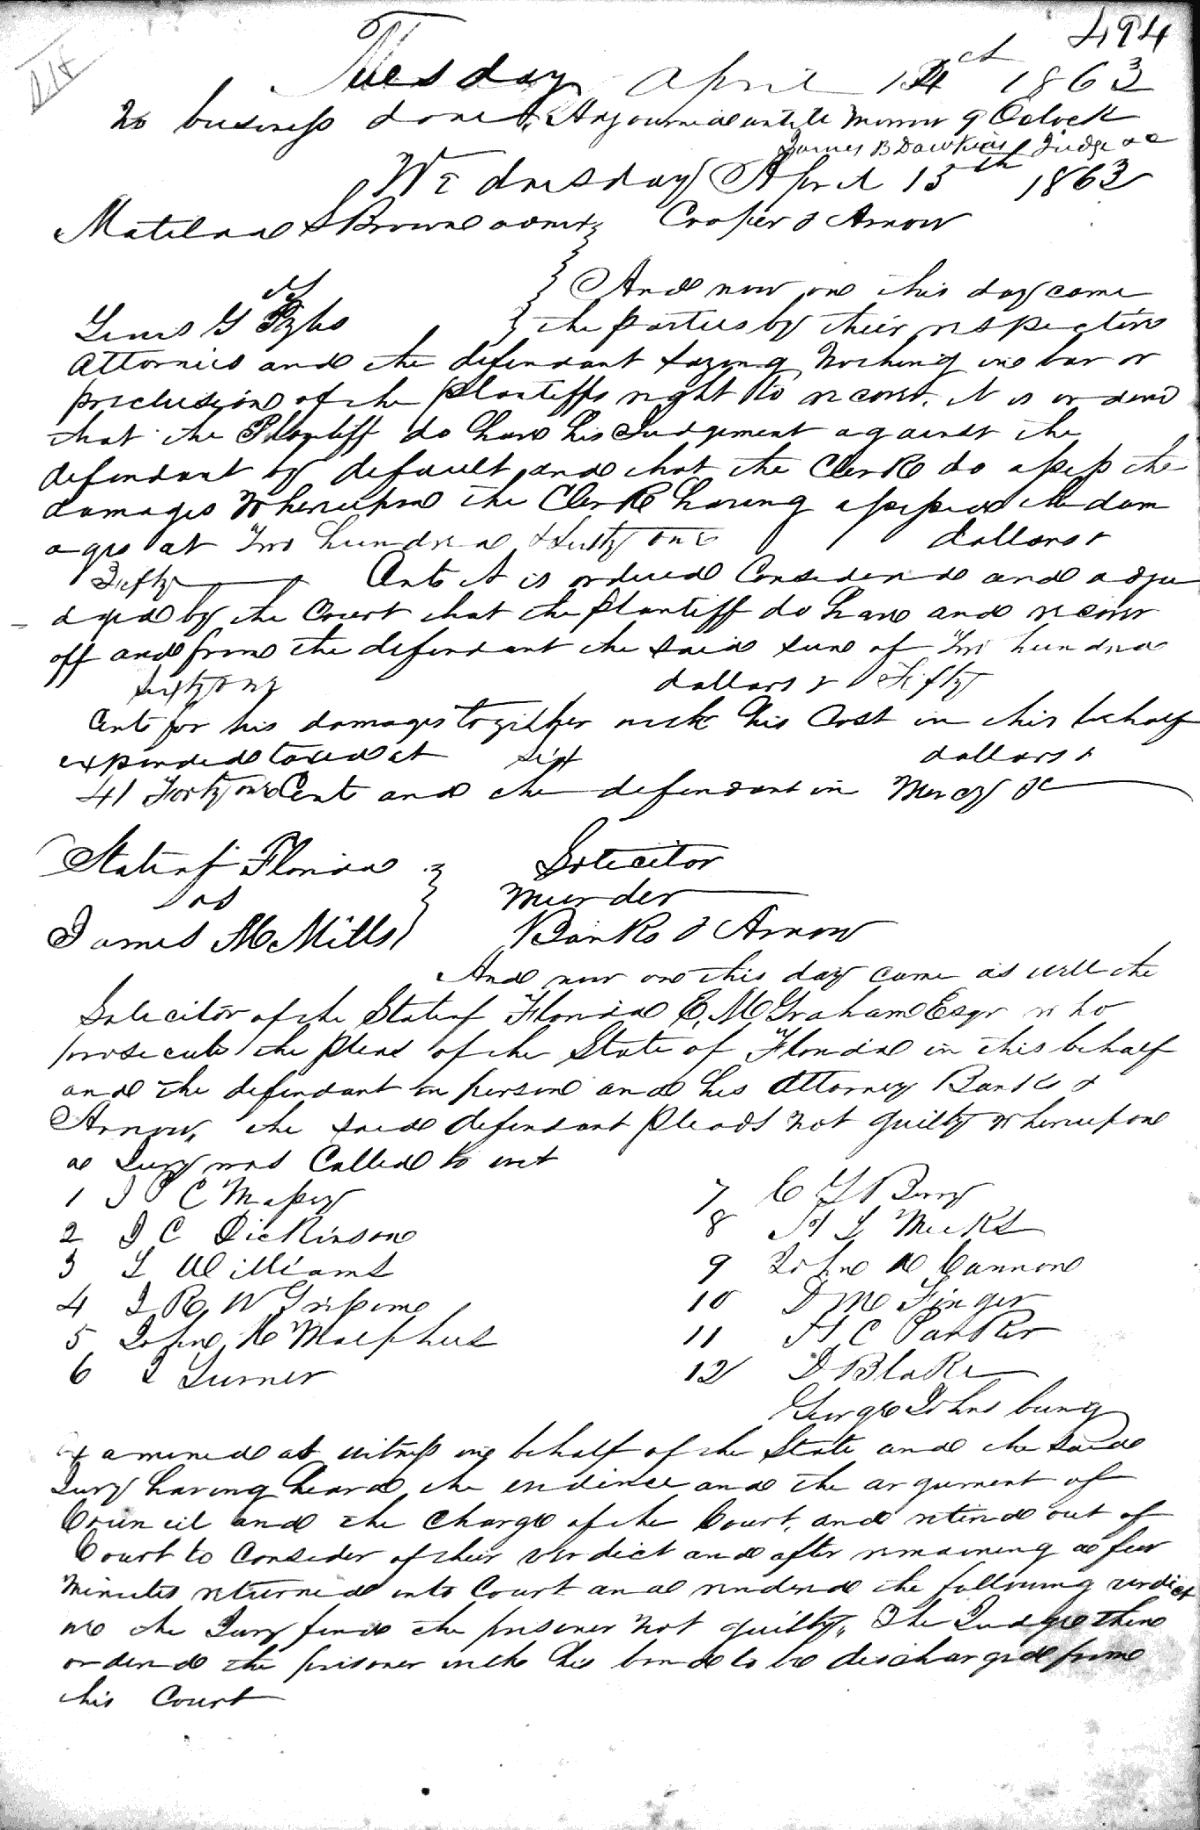 494
Tuesday April 14th 1863
No business done. Adjourned untill Morrow 9 Oclock
James B Dawkins Judge &c
Wednesday April 15th 1863
Matilda S Brown admx Cooper & Arnow
vs And now on this day came
Lewis G the parties by their respective
Attornies and the defendant saying Nothing in bar or
preclusion of the Plantiffs right to recover. it is orderd
that the Plantiff do have his Judgement against the
defendant by default and that the Clerk do assess the
damages Whereupon the Clerk having assessed the dam
ages at Two hundred & sixty one dollars &
Fifty Cents it is ordered Considered and adju
dged by the Court that the Plantiff do have and recover
off and from the defendant the said sum of Two hundred
sixty one dollars & Fifty
Cents for his damages together with his Cost in this behalf
expended taxed at six dollars &
41 Forty one Cents and the defendant in Mercy &c
State of Florida Solicitor
vs Murder
James M Mills Banks & Arnow
And now on this day came as well the
Solicitor of the State of Florida C. M Graham Esqr who
prosecute the pleas of the State of Florida in this behalf
and the defendant in person and his Attorney Banks &
Arnow, the said defendant pleads not guilty whereupon
a Jury was Called to wit
1 J P C Massey 7 C G Berry
2 J C Dickinson 8 H L Meeks
3 L Williams 9 John A Cannon
4 J R W Grissom 10 D M Finger
5 John K Macphus 11 H C Parker
6 J Turner 12 D Blake
George Johns being
Examined as witness in behalf of the State and the said
Jury having heard the evidence and the argument of
Council and the charge of the Court, and retired out of
Court to Consider of their verdict and after remaining a few
Minutes returned into Court and rendered the following verdict
we the Jury find the prisoner not guilty, The Judge then
orderd the prisoner with his bond to be discharged from
this Court